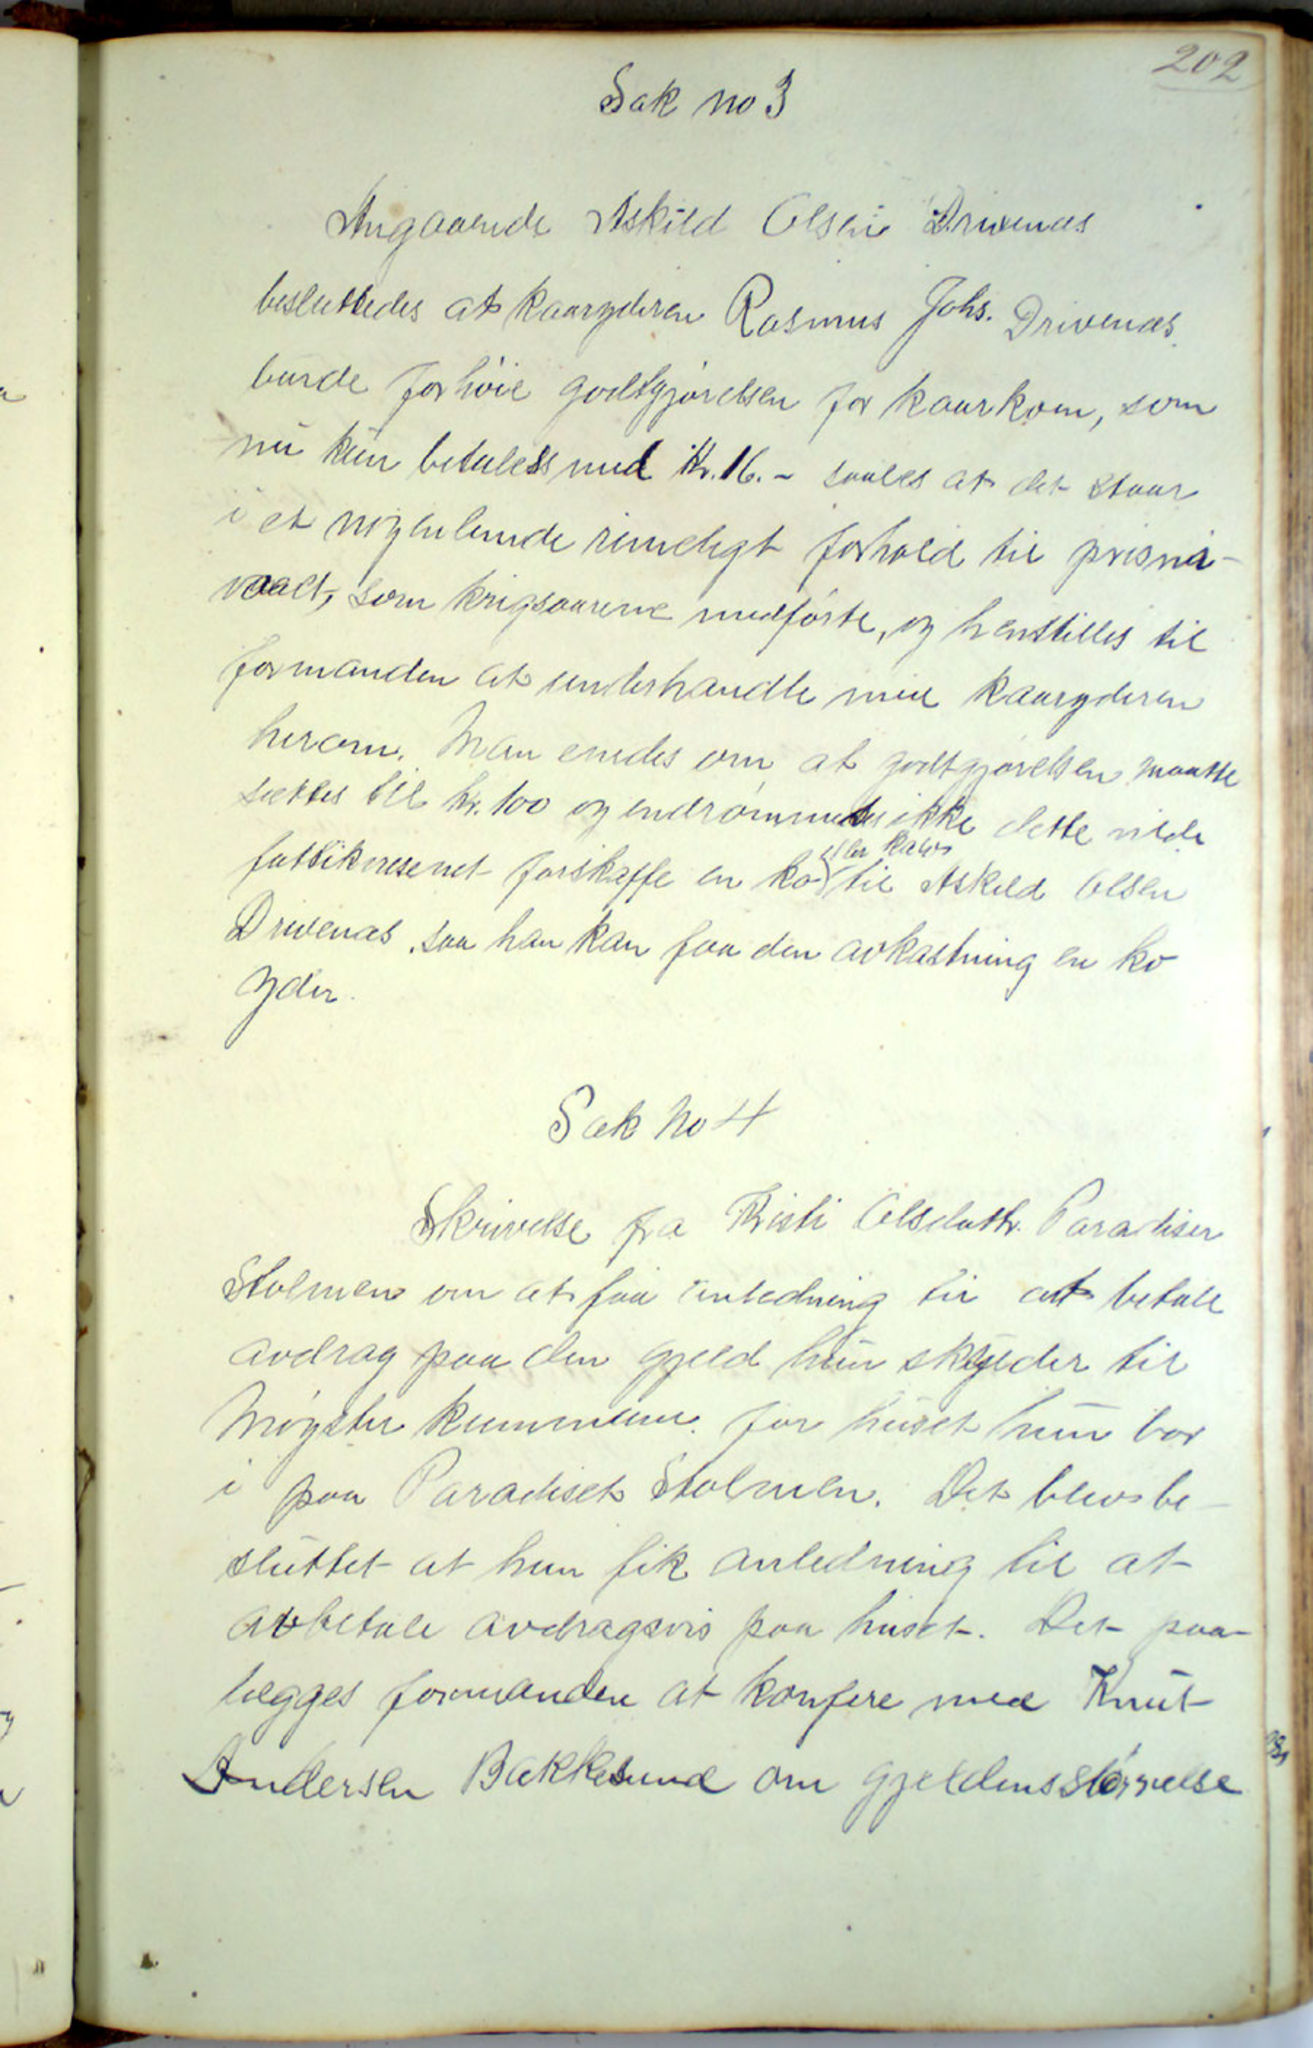 202
Sak no 3
Angaaende Askild Olsen Drivenæs
besluttedes at kaaryderen Rasmus Johs. Drivenæs
burde forhöie godtgjörelsen for kaarkom, som
nu kun betales med Kr. 16.- saales at det staar
i et nogenlunde rimeligt forhold til prisni-
vaaet, som krigsaarene medförte, og henstilles til
formanden at underhandle med kaaryderen
herom. Man enedes om at godtgjörelsen maatte
sættes til kr. 100 og indrömmedes ikke dette vilde
eller kalv
fattikvesenet forskaffe en ko til Askild Olsen
Drivenæs saa han kan faa den avkastning en ko
yder.
Sak No 4
Skrivelse fra Kristi Olsdattr. Paradisen
Stolmen om at faa anledning til at betale
avdrag paa den gjeld hun skylder til
Møgster kummune for huset hun bor
i paa Paradiset Stolmen. Det blev be-
sluttet at hun fik anledning til at
avbetale avdragsvis paa huset. Det paa-
lægges formanden at konfere med Knut
Andersen Bakkesund om gjeldens störrelse